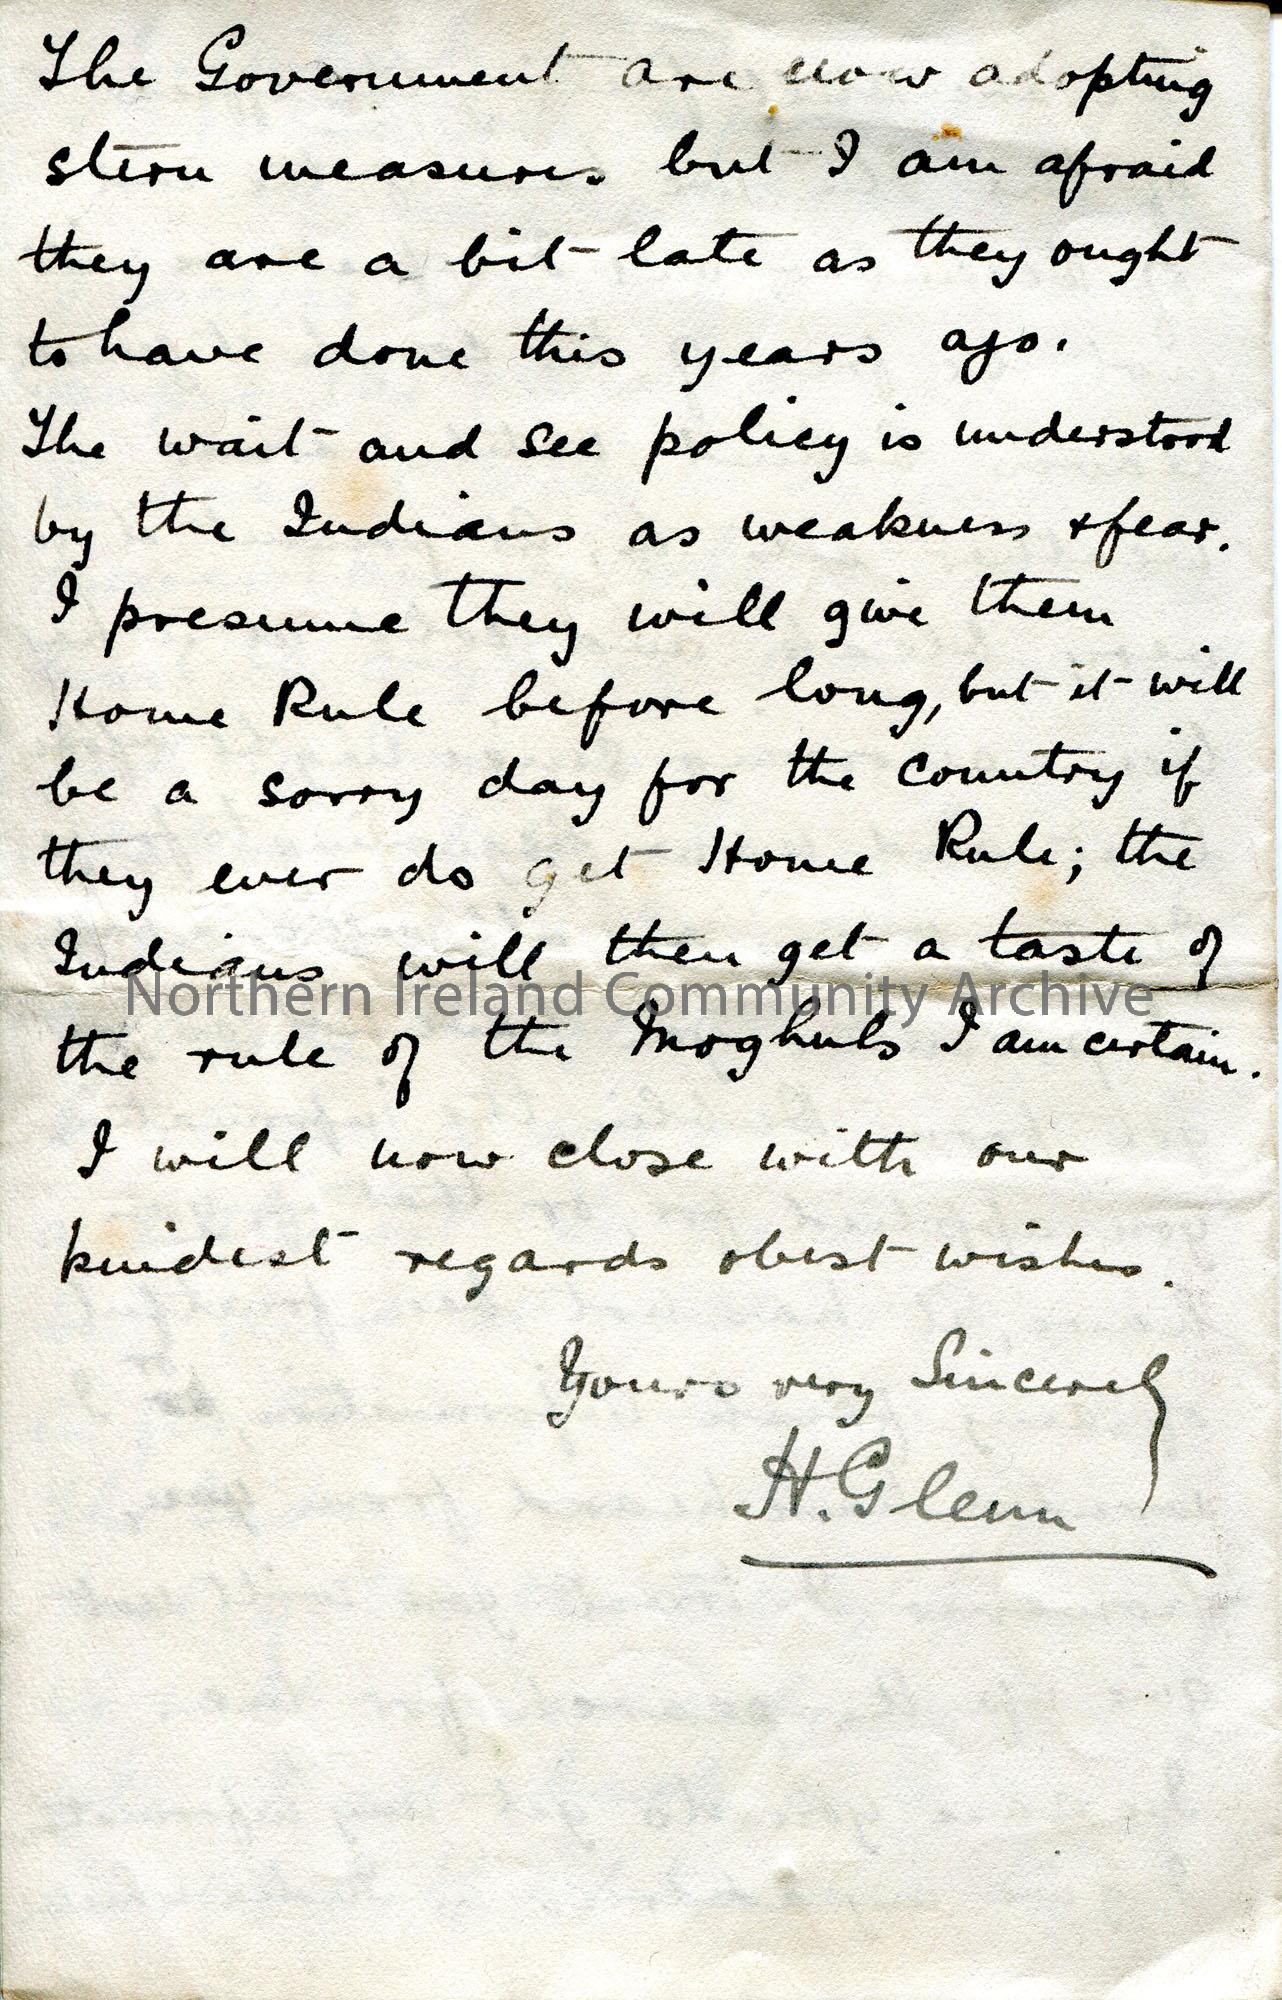 The Government are now adopting
stern measures but I am afraid
they are a bit late as they ought
to have done this years ago.
The wait and see policy is understood
by the Indians as weakness & fear.
I presume they will give them
Home Rule before long, but it will
be a sorry day for the country if
they ever do get Home Rule; the
Indians will then get a taste of
Northern Ireland Community Archive
the rule of the Moghuls I am certain.
I will now close with our
kindest regards & best wishes.
Yours very Sincerely
H. Glenn